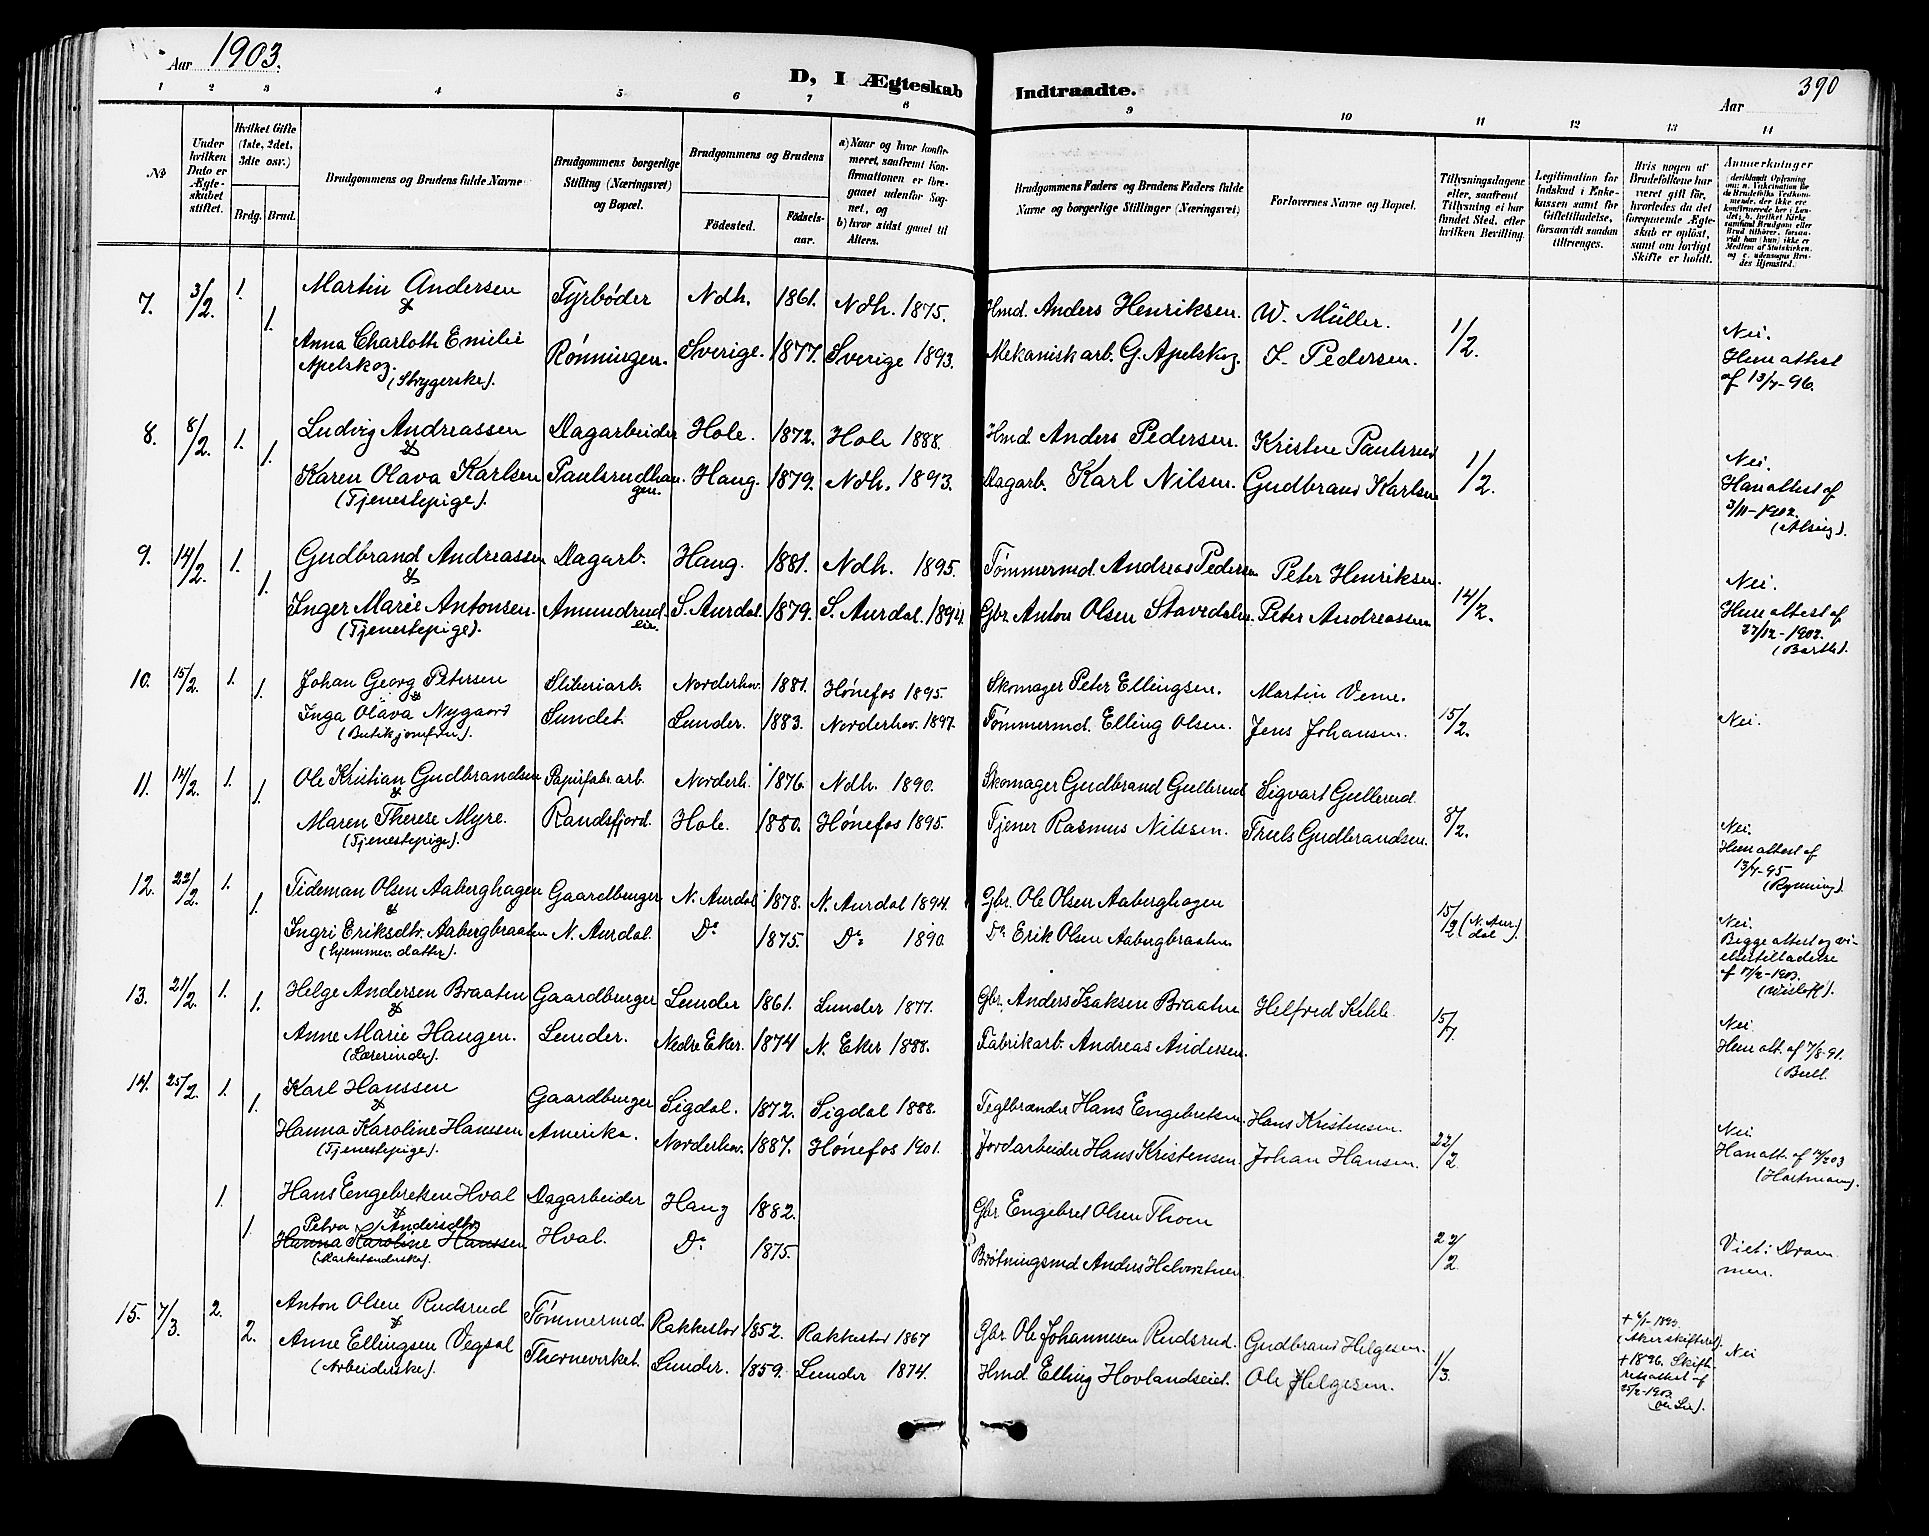 Aar 1903.
D, I Ægteskab Indtraadte.
Aar 390
1 2 3 4 5 6 7 8 9 10 11 12 13 14
No
Under hvilken Dato er Ægteskabet stiftet.
Hvilket Gifte (1ste, 2det, 3die osv.)
Brdg. Brud.
Brudgommens og Brudens fulde Navne
Brudgommens borgerlige Stilling (Næringsvei) og Bopæl.
Brudgommens og Brudens
Fødested. Fødselsaar.
a) Naar og hvor konfirmeret, saafremt Konfirmationen er foregaaet udenfor Sognet, og
b) hvor sidst gaaet til Alters.
Brudgommens Faders og Brudens Faders fulde Navne og borgerlige Stillinger (Næringsvei)
Forlovernes Navne og Bopæl.
Tillysningsdagene eller, saafremt Tillysning ei har fundet Sted, efter hvilken Bevilling
Legitimation for Indskud i Enkekassen samt for Giftetilladelse, forsaavidt saadan tiltrænges.
Hvis nogen af Brudefolkene har været gift før, hvorledes da det foregaaende Ægteskab er opløst, samt om lovligt Skifte er holdt.
Anmerkninger
7. 3/2 1. Martin Andersen Fyrbøder Ndh. 1861. Ndh. 1875. Hmd. Anders Henriksen. W. Müller.
&
1. Anna Charlotte Emilie Rønningen. Sverige. 1877. Sverige 1893. Mekaniskarb. G. Apelskog. I. Pedersen. 1/2. Nei.
Apelskog. Hun attest
(Strygerske). af 13/7-96.
8. 8/2 1. Ludvig Andreassen Dagarbeider Hole. 1872. Hole 1888. Hmd. Anders Pedersen. Kristen Paulsrud
&
1. Karen Olava Karlsen Paulsrudhaugen. Haug. 1879. Ndh. 1893. Dagarb. Karl Nilsen. Gudbrand Karlsen 1/2. Nei.
(Tjenestepige). Han attest af
3/11-1902.
(Alsing).
9. 14/2. 1. Gudbrand Andreassen Dagarb. Haug. 1881. Ndh. 1895. Tømmermd. Andreas Pedersen Peter Henriksen.
&
1. Inger Marie Antonsen Amundrudeie. S. Aurdal. 1879. S. Aurdal. 1894. Gbr. Anton Olsen Stavedalen. Peter Andreassen 14/2. Nei.
(Tjenestepige). Hun attest af
27/12-1902.
10. 15/2. 1. Johan Georg Petersen Sliberiarb. Norderhov. 1881. Hønefos 1895. Skomager Peter Ellingsen. Martin Veme.
&
1. Inga Olava Nygaard Sundet. Lunder. 1883. Norderhov. 1897. Tømmermd. Elling Olsen. Jens Johansen. 15/2. Nei.
(Butikjomfru).
11. 14/2. 1. Ole Kristian Gudbrandsen Papirfabr.arb. Norderh. 1876. Ndh. 1890. Skomager Gudbrand Gullerud Sigvart Gullerud.
&
1. Maren Therese Myre. Randsfjord. Hole. 1880. Hønefos 1895. Tjener Rasmus Nilssen. Truls Gudbrandsen. 8/2. Nei.
(Tjenestepige). Hun attest af
13/7-95
(Rynning).
12. 22/2. 1. Tideman Olsen Aaberghagen Gaardbruger N. Aurdal 1878. N. Aurdal 1894. Gbr. Ole Olsen Aaberghagen
&
1. Ingri Eriksdtr. Aabergbraaten N. Aurdal. Do 1875. Do 1890. Do Erik Olsen Aabergbraaten 15/2 (N. Aurdal). Nei.
(hjemmev. datter). Begge attest og vielsestilladelse
af 17/2-1903.
(Wisløff).
13. 21/2. 1. Helge Andersen Braaten Gaardbruger Lunder 1861. Lunder 1877. Gbr. Anders Isaksen Braaten Helfred Kihle.
&
1. Anne Marie Haugen. Lunder. Nedre Eker. 1874 N. Eker 1888. Fabrikarb. Andreas Andersen. 15/7. Nei.
(Lærerinde). Hun att. af 7/8-91.
(Bull.
14. 25/2. 1. Karl Hanssen Gaardbruger Sigdal. 1872. Sigdal 1888. Teglbrænder Hans Engebretsen Hans Kristensen.
&
1. Hanna Karoline Hanssen Amerika. Norderhov. 1887. Hønefos 1901. Jordarbeider Hans Kristensen. Johan Hansen. 22/2. Nei.
(Tjenestepige). Han att. af
(Hartmann).
1. Hans Engebretsen Hval Dagarbeider Haug 1882. Gbr. Engebret Olsen Thoen
&
Petra Andersdtr.
1. Hanna Karoline Hanssen Hval. Do 1875. Brøtningsmd Anders Halvorsen 22/2. Viet i Drammen.
15. 7/3. 2. Anton Olsen Rudsrud Tømmermd. Rakkestad 1852. Rakkestad 1867 Gbr. Ole Johannesen Rudsrud. Gudbrand Helgesen.
&
2. Anne Ellingsen Vegsal Thorneverket. Lunder. 1859. Lunder 1874. Hmd Elling Hovlandseiet. Ole Helgesen. 1/3. Nei
(Arbeiderske).
(Aker skifteret).
+ 1896. Skifteretsattest af
25/2-1903.